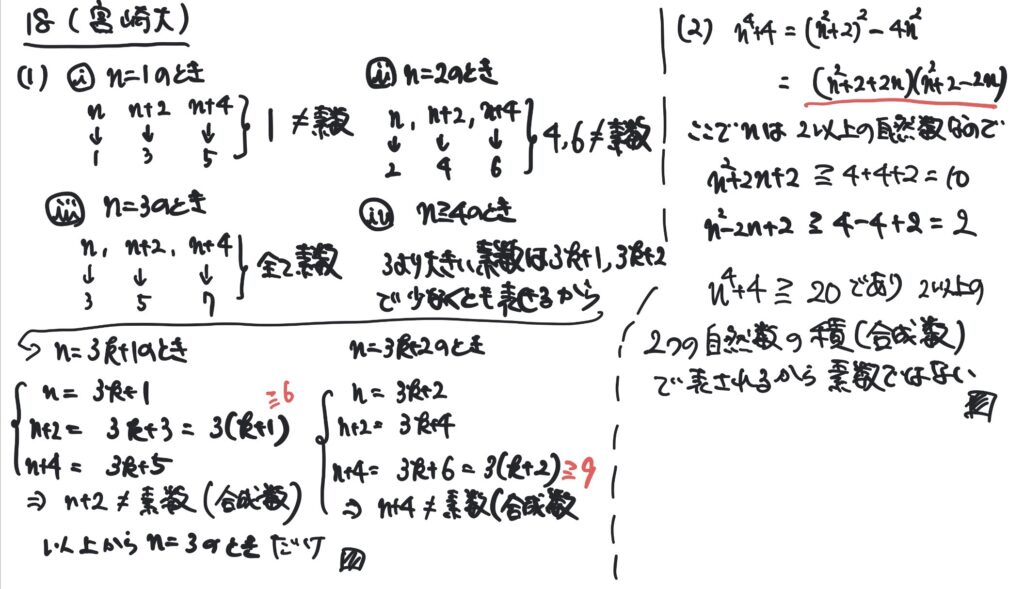 18 (宮崎大)
(1) ⅰ n=1のとき
n n+2 n+4
↓ ↓ ↓
1 3 5
1≠素数
ⅱ n=2のとき
n, n+2, n+4
↓ ↓ ↓
2 4 6
4,6≠素数
ⅲ n=3のとき
n, n+2, n+4
↓ ↓ ↓
3 5 7
全て素数
ⅳ n≧4のとき
3より大きい素数は3k+1, 3k+2
で少なくとも表せるから
n=3k+1のとき
n = 3k+1
n+2 = 3k+3 = 3(k+1) ≧6
n+4 = 3k+5
⇒ n+2 ≠ 素数 (合成数)
n=3k+2のとき
n = 3k+2
n+2 = 3k+4
n+4 = 3k+6 = 3(k+2) ≧9
⇒ n+4 ≠ 素数(合成数
以上から n=3のときだけ
(2) n⁴+4 = (n²+2)² - 4n²
= (n²+2+2n)(n²+2-2n)
ここでnは2以上の自然数なので
n²+2n+2 ≧ 4+4+2 = 10
n²-2n+2 ≧ 4-4+2 = 2
n⁴+4 ≧ 20 であり 2以上の
2つの自然数の積(合成数)
で表されるから素数ではない